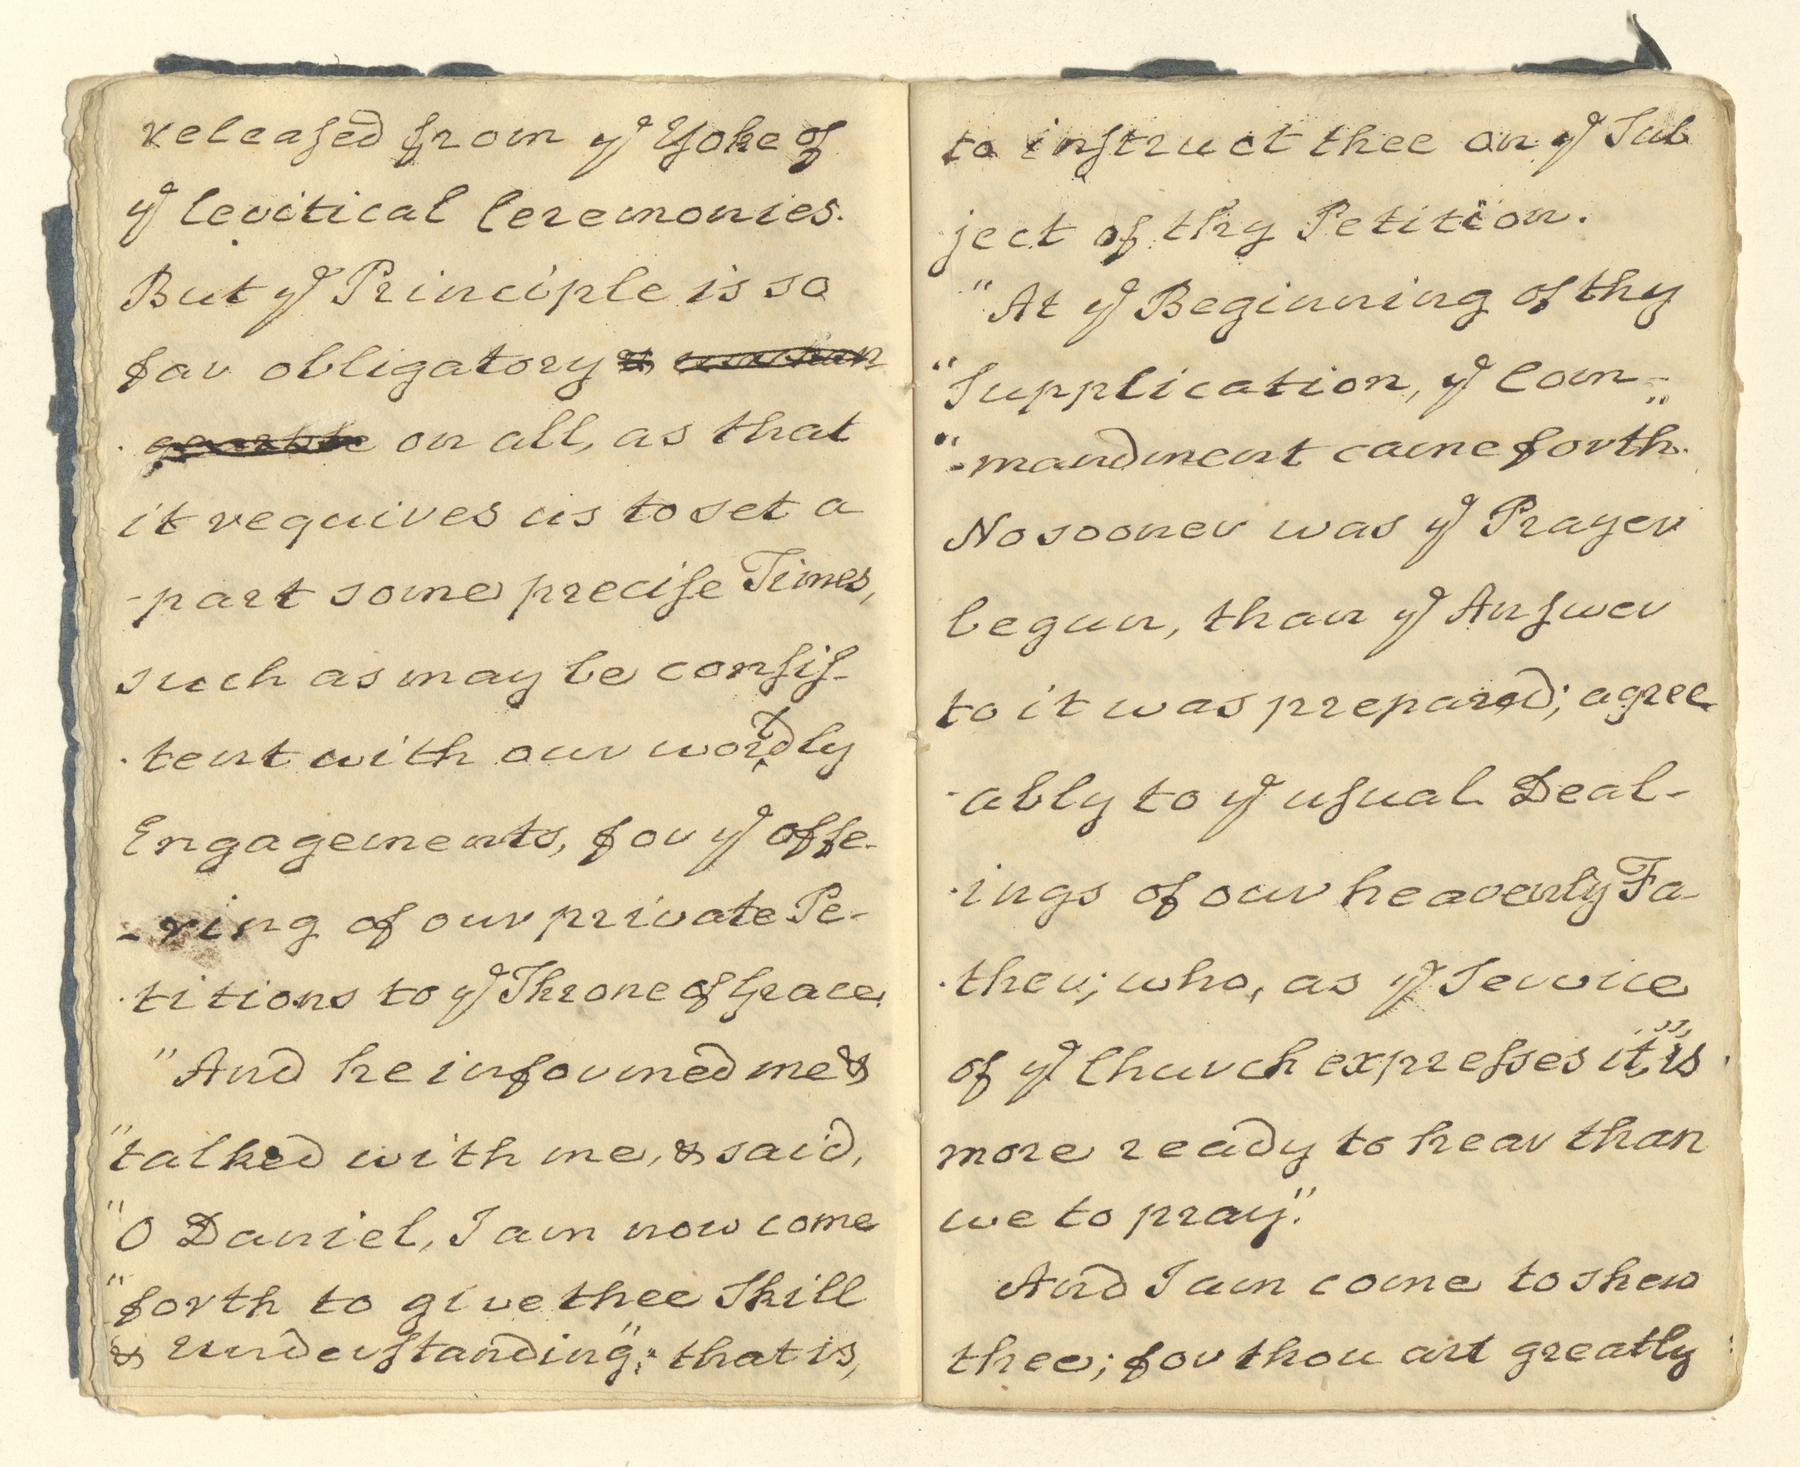 releaſed from yͤ Yoke of
yͤ levitical Ceremonies.
But yͤ Principle is so
far obligatory &
on all, as that
it requires us to set a
-part some preciſe Times,
such as may be conſiſ-
-tent with our worldly
Engagements, for yͤ offe-
-ring of our private Pe-
-titions to yͤ Throne of Grace.
"And he informed me &
"talked with me, & said,
"O Daniel, I am now come
"forth to give thee Skill
& Underſtanding"; that is,
to inſtruct thee on yͤ Sub
ject of thy Petition.
"At yͤ Beginning of thy
"Supplication, yͤ Com-"
"-mandment came forth.
No sooner was yͤ Prayer
begun, than yͤ Anſwer
to it was prepared; agree
-ably to yͤ uſual Deal-
-ings of our heavenly Fa-
-ther; who, as yͤ Service
of yͤ Church expreſses it, "is
more ready to hear than
we to pray."
And I am come to shew
thee; for thou art greatly